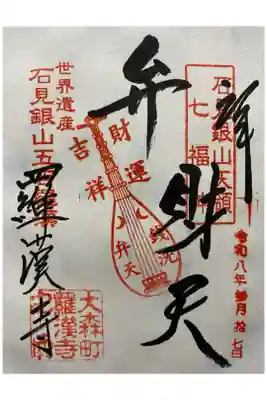 拝
石見銀山天領
七福神
令和八年
月拾七日
弁財天
財運
吉祥
銭洗
弁天
世界遺産
石見銀山五百羅漢
羅漢寺
大森町
羅漢寺